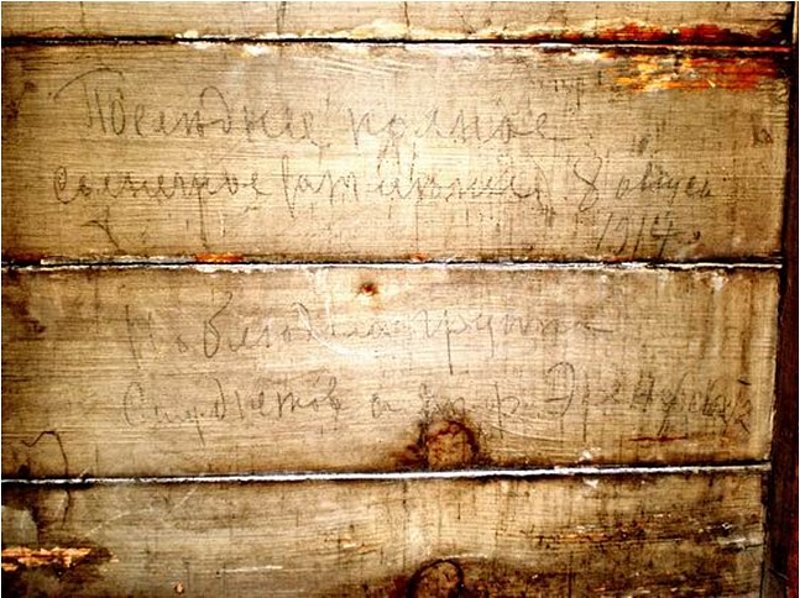 Последнее полное
солнечное затмение 8 августа
1914.
Наблюдала группа
студентов и